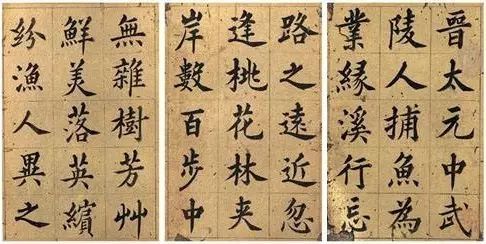 晉太元中武
陵人捕魚為
業緣溪行忘
路之遠近忽
逢桃花林夹
岸數百步中
無雜樹芳艸
鮮美落英繽
紛漁人異之